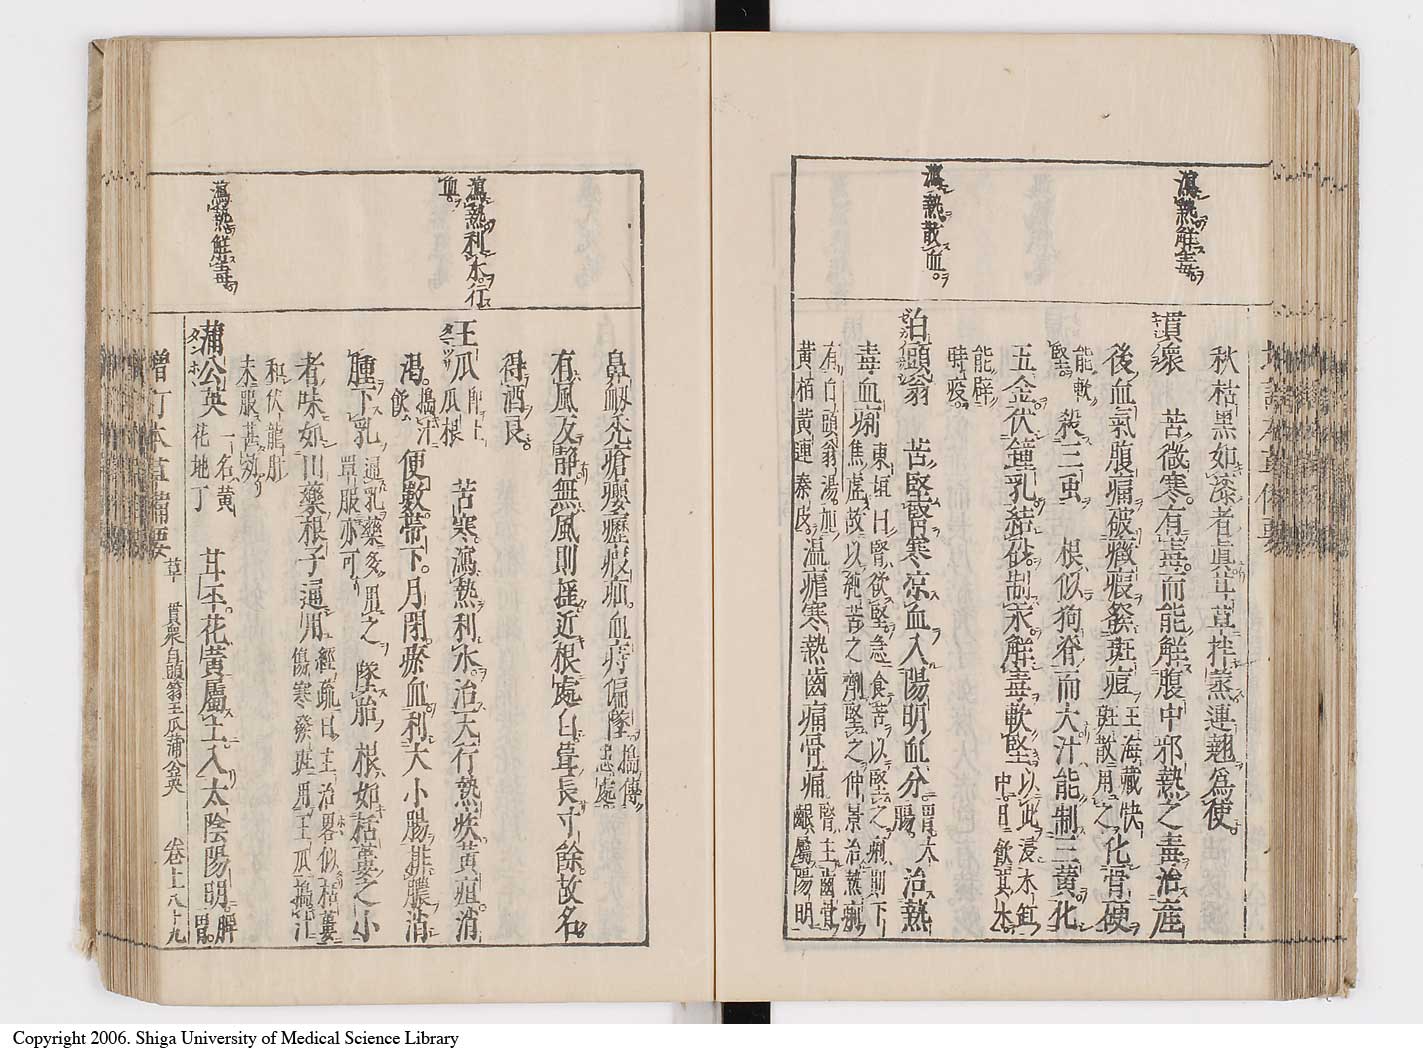 瀉熱解毒
瀉熱散血
秋枯黑如漆者眞甘草拌蒸連翹爲使
貫衆 苦微寒有毒而能解腹中邪熱之毒治産
後血氣腹痛破癥瘕發斑痘王海藏快斑散用之化骨硬
能軟堅殺三虫 根似狗脊而大汁能制三黃化
五金伏鍾乳結砂制汞解毒軟堅以此浸水缸中日飲其水
能辟時疫
白頭翁 苦堅腎寒凉血入陽明血分胃大腸治熱
毒血痢東垣曰腎欲堅急食苦以堅之痢則下焦虛故以純苦之劑堅之仲景治熱痢
有白頭翁湯加黃栢黃連秦皮溫瘧寒熱齒痛骨痛腎主齒骨齦屬陽明
瀉熱利水行血
瀉熱解毒
鼻衂禿瘡癭瓥瘕疝血痔偏墜搗傅患處
有風反靜無風則搖近根處白茸長寸餘故名
得酒良
王瓜 卽土瓜根 苦寒瀉熱利水治天行熱疾黃疸消
渴搗汁飲便數帶下月閉瘀血利大小腸排膿消
腫下乳通乳藥多用之單服亦可墜胎 根如栝蔞之小
者味如山藥根子通用經疏曰主治畧似栝蔞傷寒發斑用王瓜搗汁
和伏龍肝末服甚効
蒲公英 一名黃花地丁 甘平花黃屬土入太陰陽明脾胃
增訂本草備要 草 貫衆白頭翁王瓜蒲公英 卷上八十九